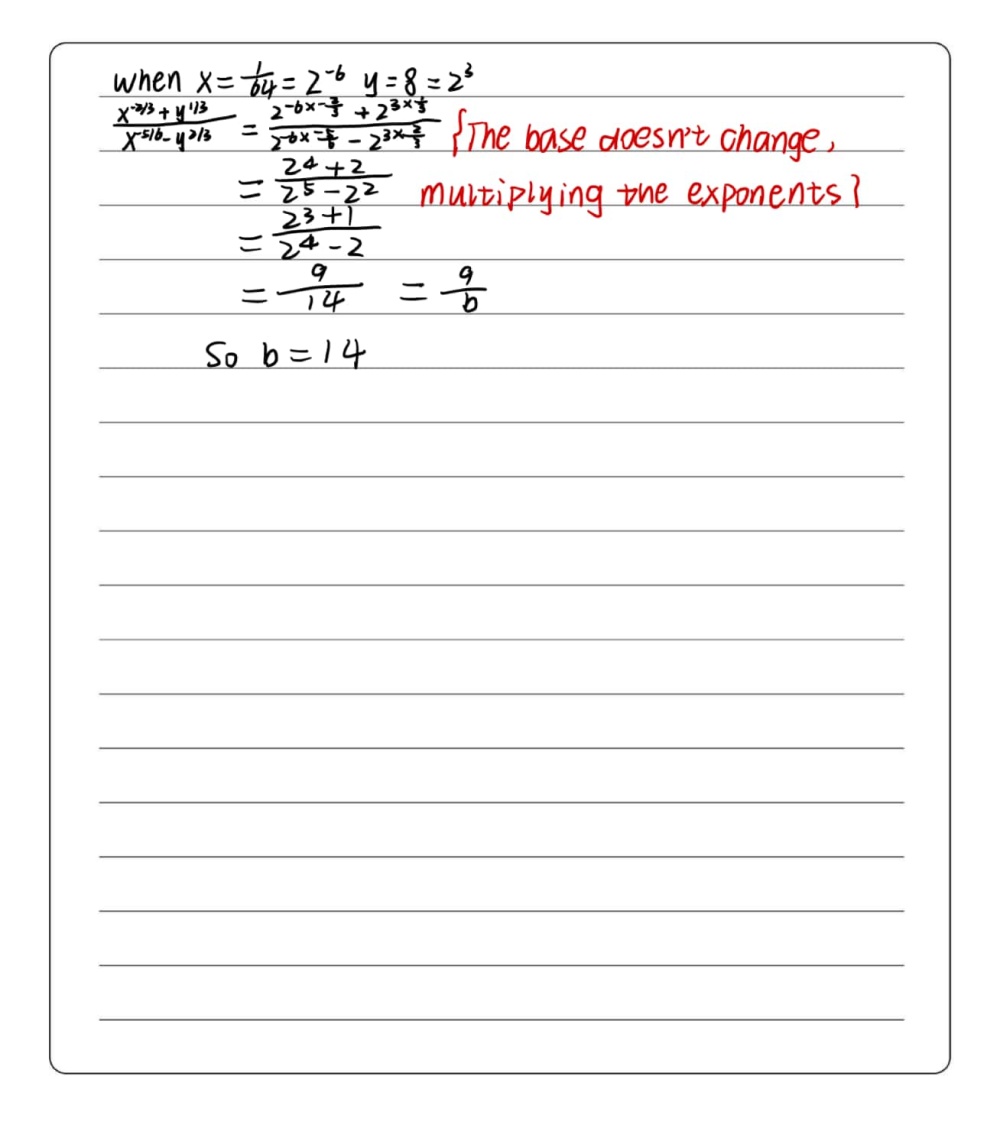 when x = 1/64 = 2^-6 y = 8 = 2^3
(x^-2/3 + y^1/3)/(x^-5/6 - y^2/3) = (2^(-6 × -2/3) + 2^(3 × 1/3))/(2^(-6 × -5/6) - 2^(3 × 2/3)) {The base doesn't change,
= (2^4 + 2)/(2^5 - 2^2) multiplying the exponents}
= (2^3 + 1)/(2^4 - 2)
= 9/14 = 9/b
So b = 14